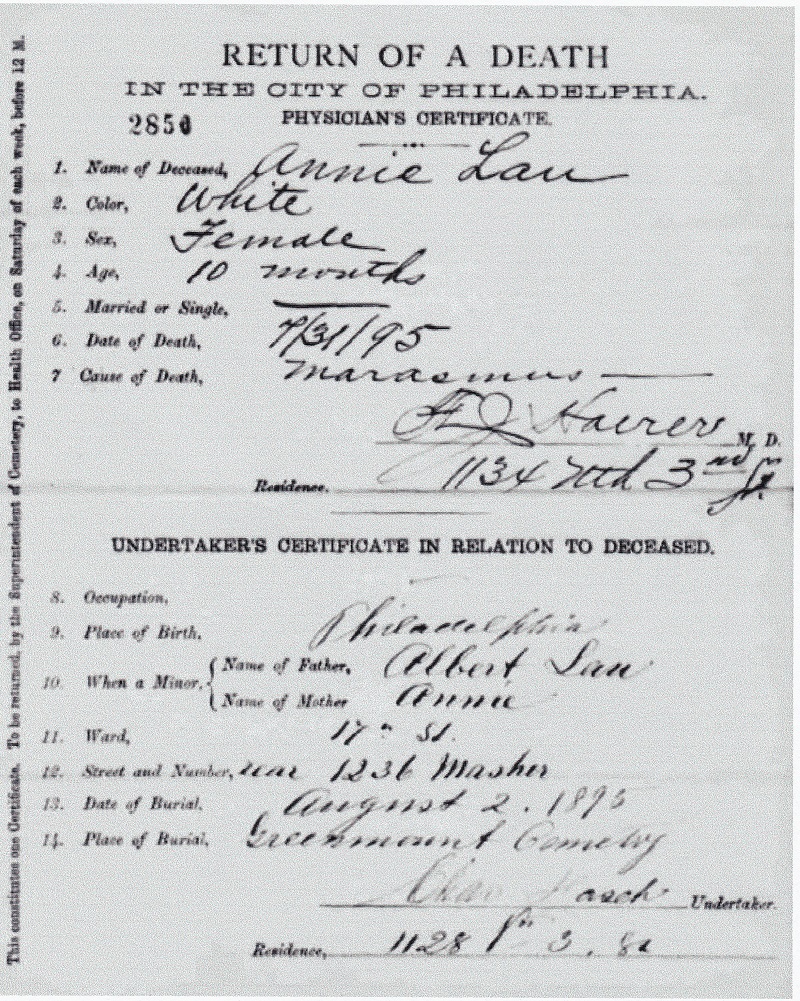 RETURN OF A DEATH
IN THE CITY OF PHILADELPHIA.
PHYSICIAN'S CERTIFICATE.
1. Name of Deceased, Annie Lau
2. Color, White
3. Sex, Female
4. Age, 10 months
5. Married or Single, —
6. Date of Death, 7/31/95
7 Cause of Death, Marasmus —
M. D.
Residence. 1134 3rd St.
UNDERTAKER'S CERTIFICATE IN RELATION TO DECEASED.
8. Occupation,
9. Place of Birth, Philadelphia
10. When a Minor, { Name of Father, Albert Lau
Name of Mother Annie
11. Ward, 17th St.
12. Street and Number, rear 1236 Masher
13. Date of Burial, August 2. 1895
14. Place of Burial, Greenmount Cemetry
Undertaker.
Residence, 1128 3. St
This constitutes one Certificate. To be returned, by the Superintendent of Cemetery, to Health Office, on Saturday of each week, before 12 M.